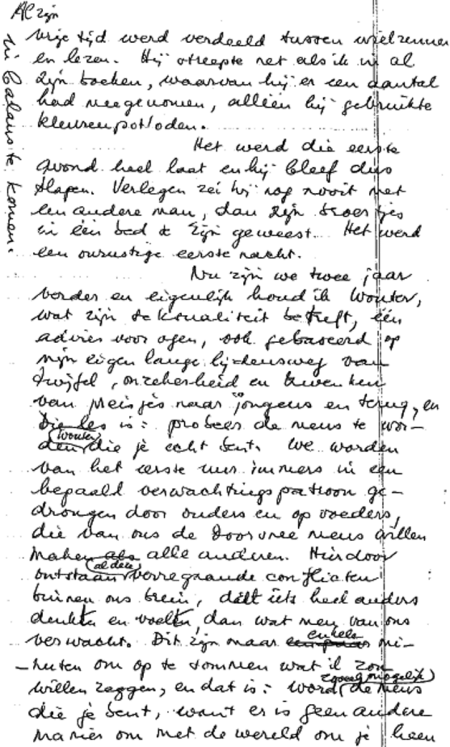 Al zijn
vrije tijd werd verdeeld tussen wielrennen
en lezen. Hij streepte net als ik in al
zijn boeken, waarvan hij er een aantal
had meegenomen, alleen hij gebruikte
kleurenpotloden.
Het werd die eerste
avond heel laat en hij bleef dus
slapen. Verlegen zei hij nog nooit met
een andere man, dan zijn broertjes
in één bed te zijn geweest. Het werd
een onrustige eerste nacht.
Nu zijn we twee jaar
verder en eigenlijk houd ik Wouter,
wat zijn seksualiteit betreft, één
advies voor ogen, ook gebaseerd op
mijn eigen lange lijdensweg van
twijfel, onzekerheid en zwenken
van meisjes naar jongens en terug, en
die les is: probeer de mens te wor-
den (Wouter) die je echt bent. We worden
van het eerste uur immers in een
bepaald verwachtingspatroon ge-
drongen door ouders en opvoeders,
die van ons de doorsnee mens willen
maken als alle anderen. Hierdoor
ontstaan (al deze) verregaande conflicten
binnen ons brein, dat iets heel anders
denkt en voelt, dan wat men van ons
verwacht. Dit zijn maar een paar enkele mi-
nuten om op te sommen wat ik zou
willen zeggen, en dat is: word (zo gauw mogelijk) de mens
die je bent, want er is geen andere
manier om met de wereld om je heen
in balans te komen.